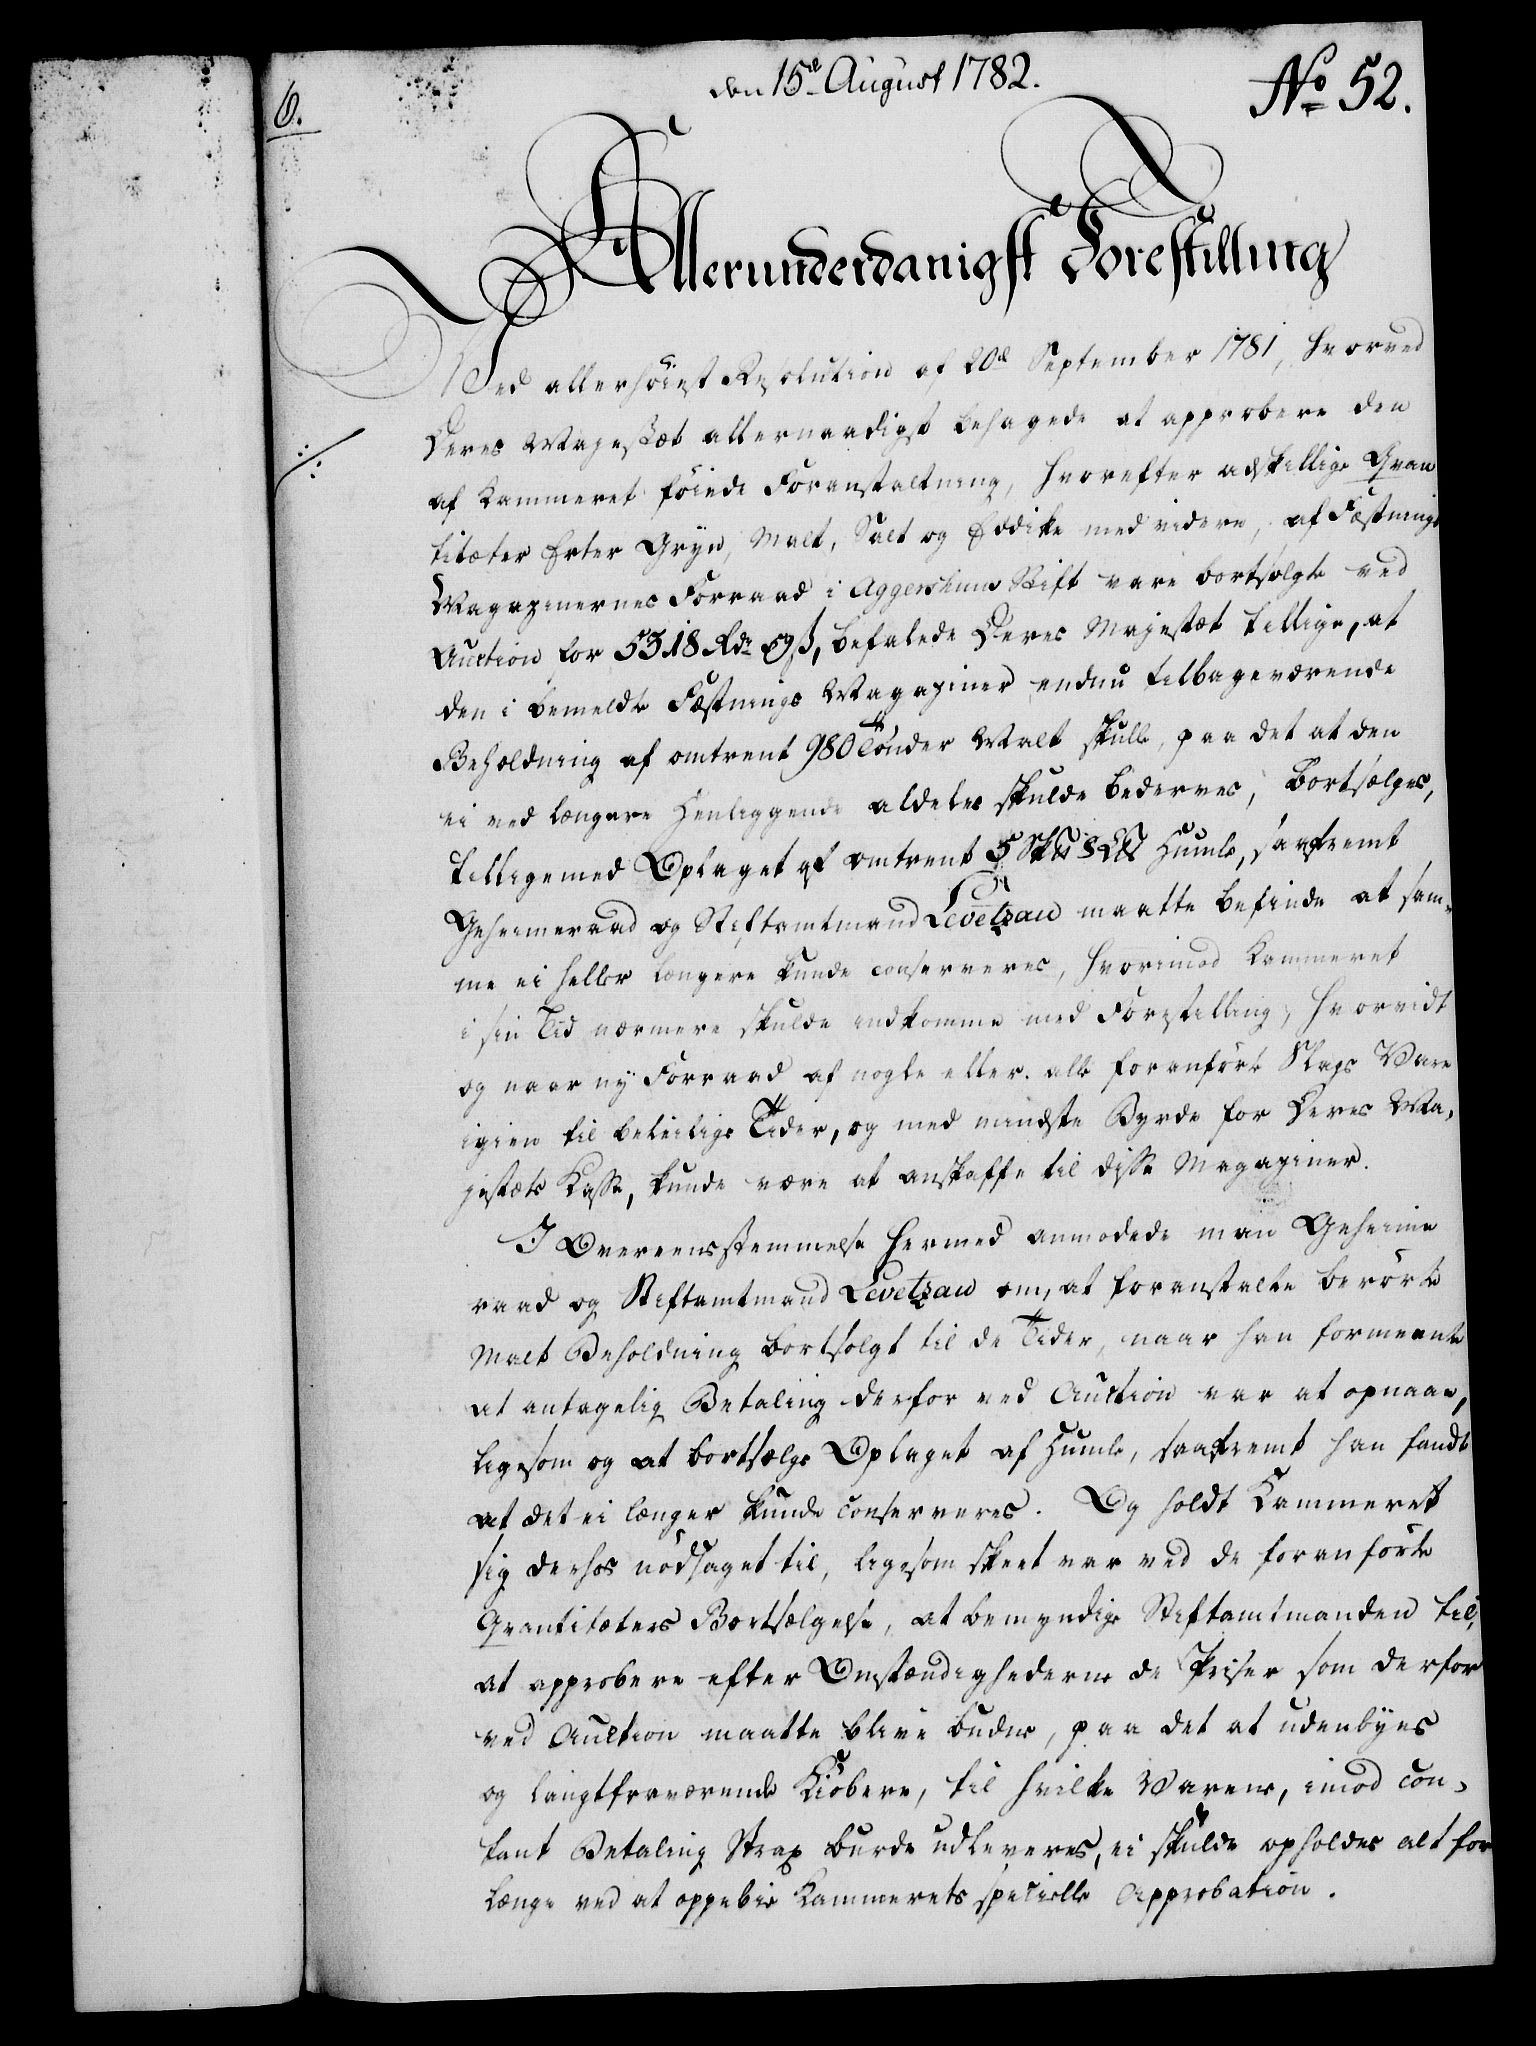 den 15de August 1782.
No 52.
6.
Allerunderdanigst Forestilling
Ved allerhöiest Resolution af 20de September 1781, hvorved
Deres Majestæt allernaadigst behagede at approbere den
af Kammeret föiede Foranstaltning, hvorefter adskillige Qvan
titæter Erter Gryn, Malt, Salt og Eddike med videre, af Fæstnings
Magazinernes Forraad i Aggershuus Stift vare bortsolgte ved
Auction for 5318 Rdr 59 s, befalede Deres Majestæt tillige, at
den i bemeldte Fæstnings Magaziner endnu tilbageværende
Beholdning af omtrent 980 Tönder Malt skulle, paa det at den
ei ved længere Henliggende aldeles skulde bederves, bortsælges,
tilligemed Oplaget af omtrent 5 Skt 8 Lt Humle, saafremt
Geheimeraad og Stiftamtmand Levetzau maatte befinde at sam-
me ei heller længere kunde conserveres, hvorimod Kammeret
i sin Tid nærmere skulde indkomme med Forestilling, hvorvidt
og naar ny Forraad af nogle eller alle foranförte Slags Vare
igien til beleilige Tider, og med mindste Byrde for Deres Ma-
jestæts Kasse, kunde være at anskaffe til disse Magaziner.
I Overeensstemmelse hermed anmodede man Geheime
raad og Stiftamtmand Levetzau om, at foranstalte berörte
Malt Beholdning bortsolgt til de Tider, naar han formeente
at antagelig Betaling derfor ved Auction var at opnaae,
ligesom og at bortsælge Oplaget af Humle, saafremt han fandt
at det ei længer kunde conserveres. Og holdt Kammeret
sig derhos nödsaget til, ligesom skeet var ved de foranförte
Qvantitæters Bortsælgelse, at bemyndige Stiftamtmanden til,
at approbere efter Omstændighederne de Priser som derfor
ved Auction maatte blive budne, paa det at udenbyes
og langtfraværende Kiöbere, til hvilke Varene, imod con-
tant Betaling strax burde udleveres, ei skulde opholdes alt for
længe ved at oppebie Kammerets specielle Approbation.